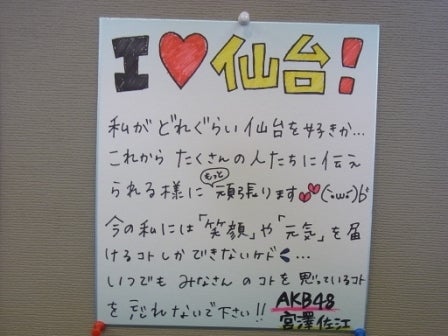 I♥仙台!
私がどれぐらい仙台を好きか…
これから たくさんの人たちに伝え
られる様に もっと 頑張ります💕(・ω・)b
今の私には「笑顔」や「元気」を届
けるコトしかできないケド…
いつでも みなさんのコトを思っているコト
を忘れないで下さい!!
AKB48
宮澤佐江